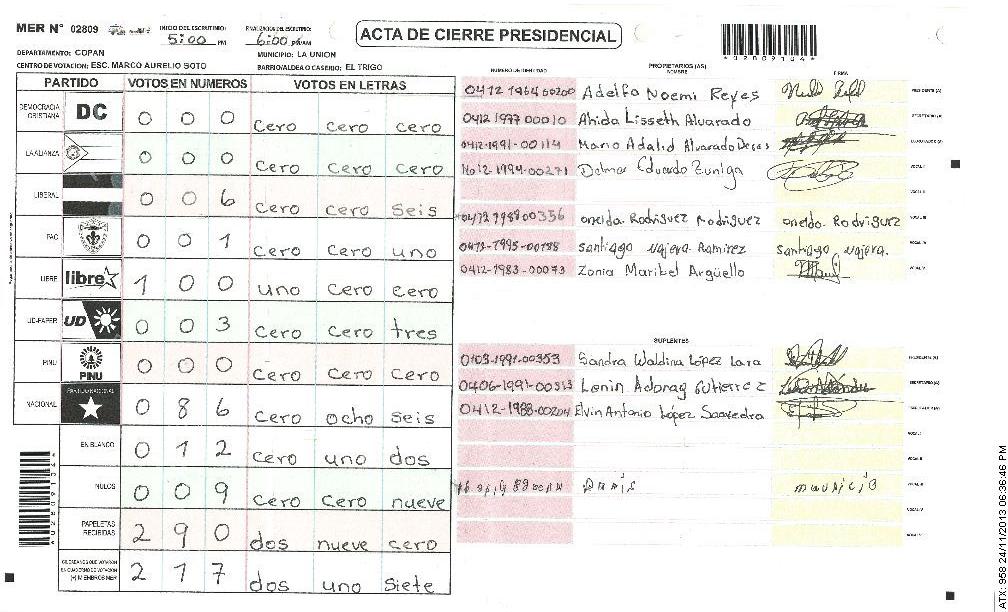 MER N° 02809
INICIO DEL ESCRUTINIO: 5:00 PM
FINALIZACION DEL ESCRUTINIO: 6:00 PM
ACTA DE CIERRE PRESIDENCIAL
DEPARTAMENTO: COPAN
MUNICIPIO: LA UNION
CENTRO DE VOTACION: ESC. MARCO AURELIO SOTO
BARRIO/ALDEA O CASERIO: EL TRIGO
PARTIDO VOTOS EN NUMEROS VOTOS EN LETRAS
DEMOCRACIA CRISTIANA DC 0 0 0 cero cero cero
LA ALIANZA 0 0 0 cero cero cero
LIBERAL 0 0 6 cero cero seis
PAC 0 0 1 cero cero uno
LIBRE libre 1 0 0 uno cero cero
UD-FAPER UD 0 0 3 cero cero tres
PINU PINU 0 0 0 cero cero cero
NACIONAL 0 8 6 cero ocho seis
EN BLANCO 0 1 2 cero uno dos
NULOS 0 0 9 cero cero nueve
PAPELETAS RECIBIDAS 2 9 0 dos nueve cero
CIUDADANOS QUE VOTARON EN CUADERNO DE VOTACION (+) MIEMBROS MER 2 1 7 dos uno siete
*02809104*
NUMERO DE IDENTIDAD PROPIETARIOS (AS) NOMBRE FIRMA
0412 1964 00200 Adelfa Noemi Reyes PRESIDENTE (A)
0412 1997 00010 Ahida Lisseth Alvarado SECRETARIO (A)
0412-1991-00114 Mario Adalid Alvarado
1994-00271 Delmar Eduardo Zuniga VOCAL I
VOCAL II
00356 oneida Rodriguez Rodriguez oneida Rodriguez VOCAL III
0412-1995-00188 santiago najera Ramirez santiago najera. VOCAL IV
0412-1983-00073 Zonia Maribel Argüello VOCAL V
SUPLENTES
0103-1991-00353 Sandra Waldina López Lara PRESIDENTE (A)
0406-1991-00313 Lenin Adonay Gutierrez SECRETARIO (A)
0412-1988-00204 Elvin Antonio López Saavedra
VOCAL I
VOCAL II
mauricio VOCAL III
VOCAL IV
VOCAL V
ATX: 958 24/11/2013 06:36:46 PM